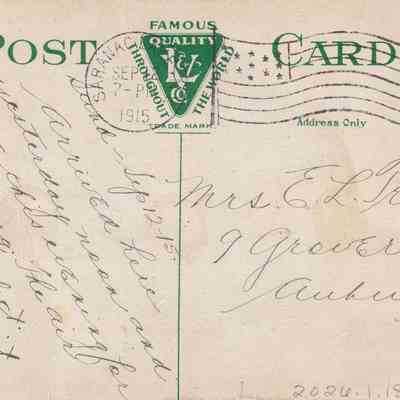 FAMOUS
POST CARD
QUALITY
THROUGHOUT THE WORLD
R&N
Co
TRADE MARK
SARANAC
SEP
7-P
1915
Address Only
Sund- Sep 12-15
Arrived here
yesterday noon and
this evening for
Mrs. E. L.
9 Grover
Aubu
2024.1.19